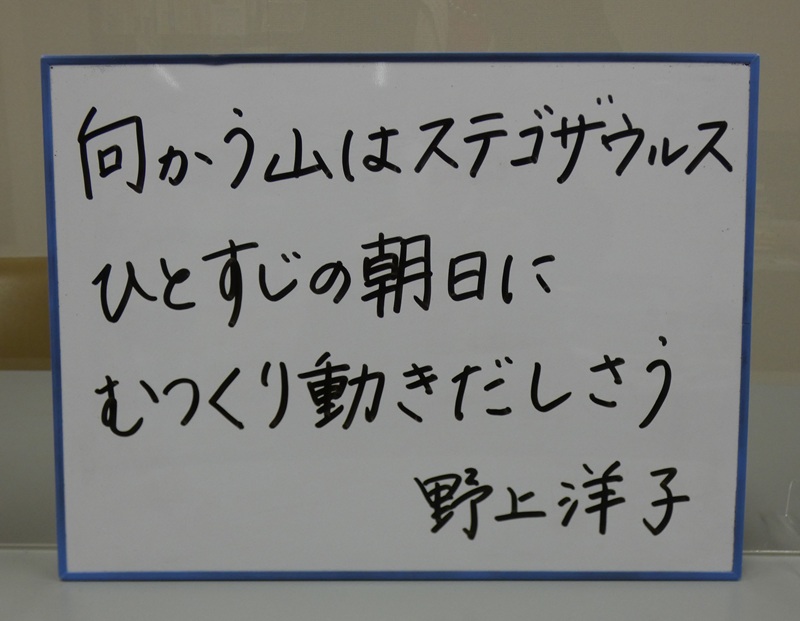 向かう山はステゴザウルス
ひとすじの朝日に
むつくり動きだしさう
野上洋子